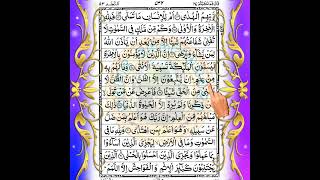 رَّبِّهِمُ الْهُدٰى ۞ اَمْ لِلْاِنْسَانِ مَا تَمَنّٰى ۞ فَلِلّٰهِ
الْاٰخِرَةُ وَالْاُوْلٰى ۞ وَكَمْ مِّنْ مَّلَكٍ فِى السَّمٰوٰتِ لَا
تُغْنِىْ شَفَاعَتُهُمْ شَيْـًٔا اِلَّا مِنْۢ بَعْدِ اَنْ يَّاْذَنَ اللّٰهُ
لِمَنْ يَّشَآءُ وَيَرْضٰى ۞ اِنَّ الَّذِيْنَ لَا يُؤْمِنُوْنَ بِالْاٰخِرَةِ
لَيُسَمُّوْنَ الْمَلٰٓئِكَةَ تَسْمِيَةَ الْاُنْثٰى ۞ وَمَا لَهُمْ بِهٖ
مِنْ عِلْمٍ اِنْ يَّتَّبِعُوْنَ اِلَّا الظَّنَّ وَاِنَّ الظَّنَّ لَا
يُغْنِىْ مِنَ الْحَقِّ شَيْـًٔا ۞ فَاَعْرِضْ عَنْ مَّنْ تَوَلّٰى
عَنْ ذِكْرِنَا وَلَمْ يُرِدْ اِلَّا الْحَيٰوةَ الدُّنْيَا ۞ ذٰلِكَ
مَبْلَغُهُمْ مِّنَ الْعِلْمِ اِنَّ رَبَّكَ هُوَ اَعْلَمُ بِمَنْ ضَلَّ
عَنْ سَبِيْلِهٖ وَهُوَ اَعْلَمُ بِمَنِ اهْتَدٰى ۞ وَلِلّٰهِ مَا فِى
السَّمٰوٰتِ وَمَا فِى الْاَرْضِ لِيَجْزِىَ الَّذِيْنَ اَسَآءُوْا
بِمَا عَمِلُوْا وَيَجْزِىَ الَّذِيْنَ اَحْسَنُوْا بِالْحُسْنٰى ۞ اَلَّذِيْنَ
يَجْتَنِبُوْنَ كَبٰٓئِرَ الْاِثْمِ وَالْفَوَاحِشَ اِلَّا اللَّمَمَ